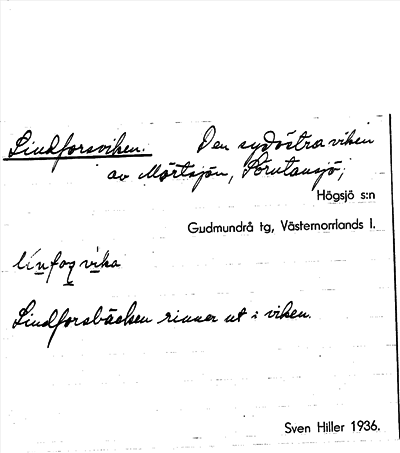 Lindforsviken. Den sydöstra viken
av Mörtsjön, Förutansjö;
Högsjö s:n
Gudmundrå tg, Västernorrlands l.
línfoṣ vika
Lindforsbäcken rinner ut i viken.
Sven Hiller 1936.